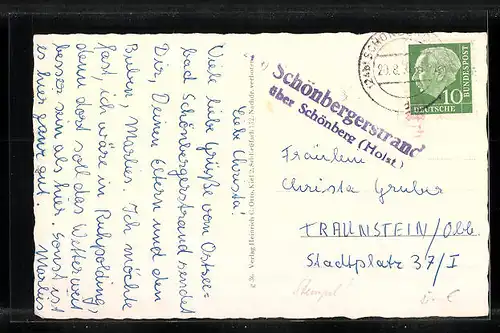 Liebe Christa!
Viele liebe Grüße vom Ostsee=
bad Schönbergerstrand sendet
Dir, Deinen Eltern und den
Buben, Marlies. Ich möchte
fast, ich wäre in Ruhpolding,
denn dort soll das Wetter weit
besser sein als hier. Sonst ist
es hier ganz gut. Marlies
Schönbergerstrand
über Schönberg (Holst.)
DEUTSCHE
BUNDESPOST
10
Fräulein
Christa Gruber
TRAUNSTEIN/Obb.
Stadtplatz 37/I
Stempel!